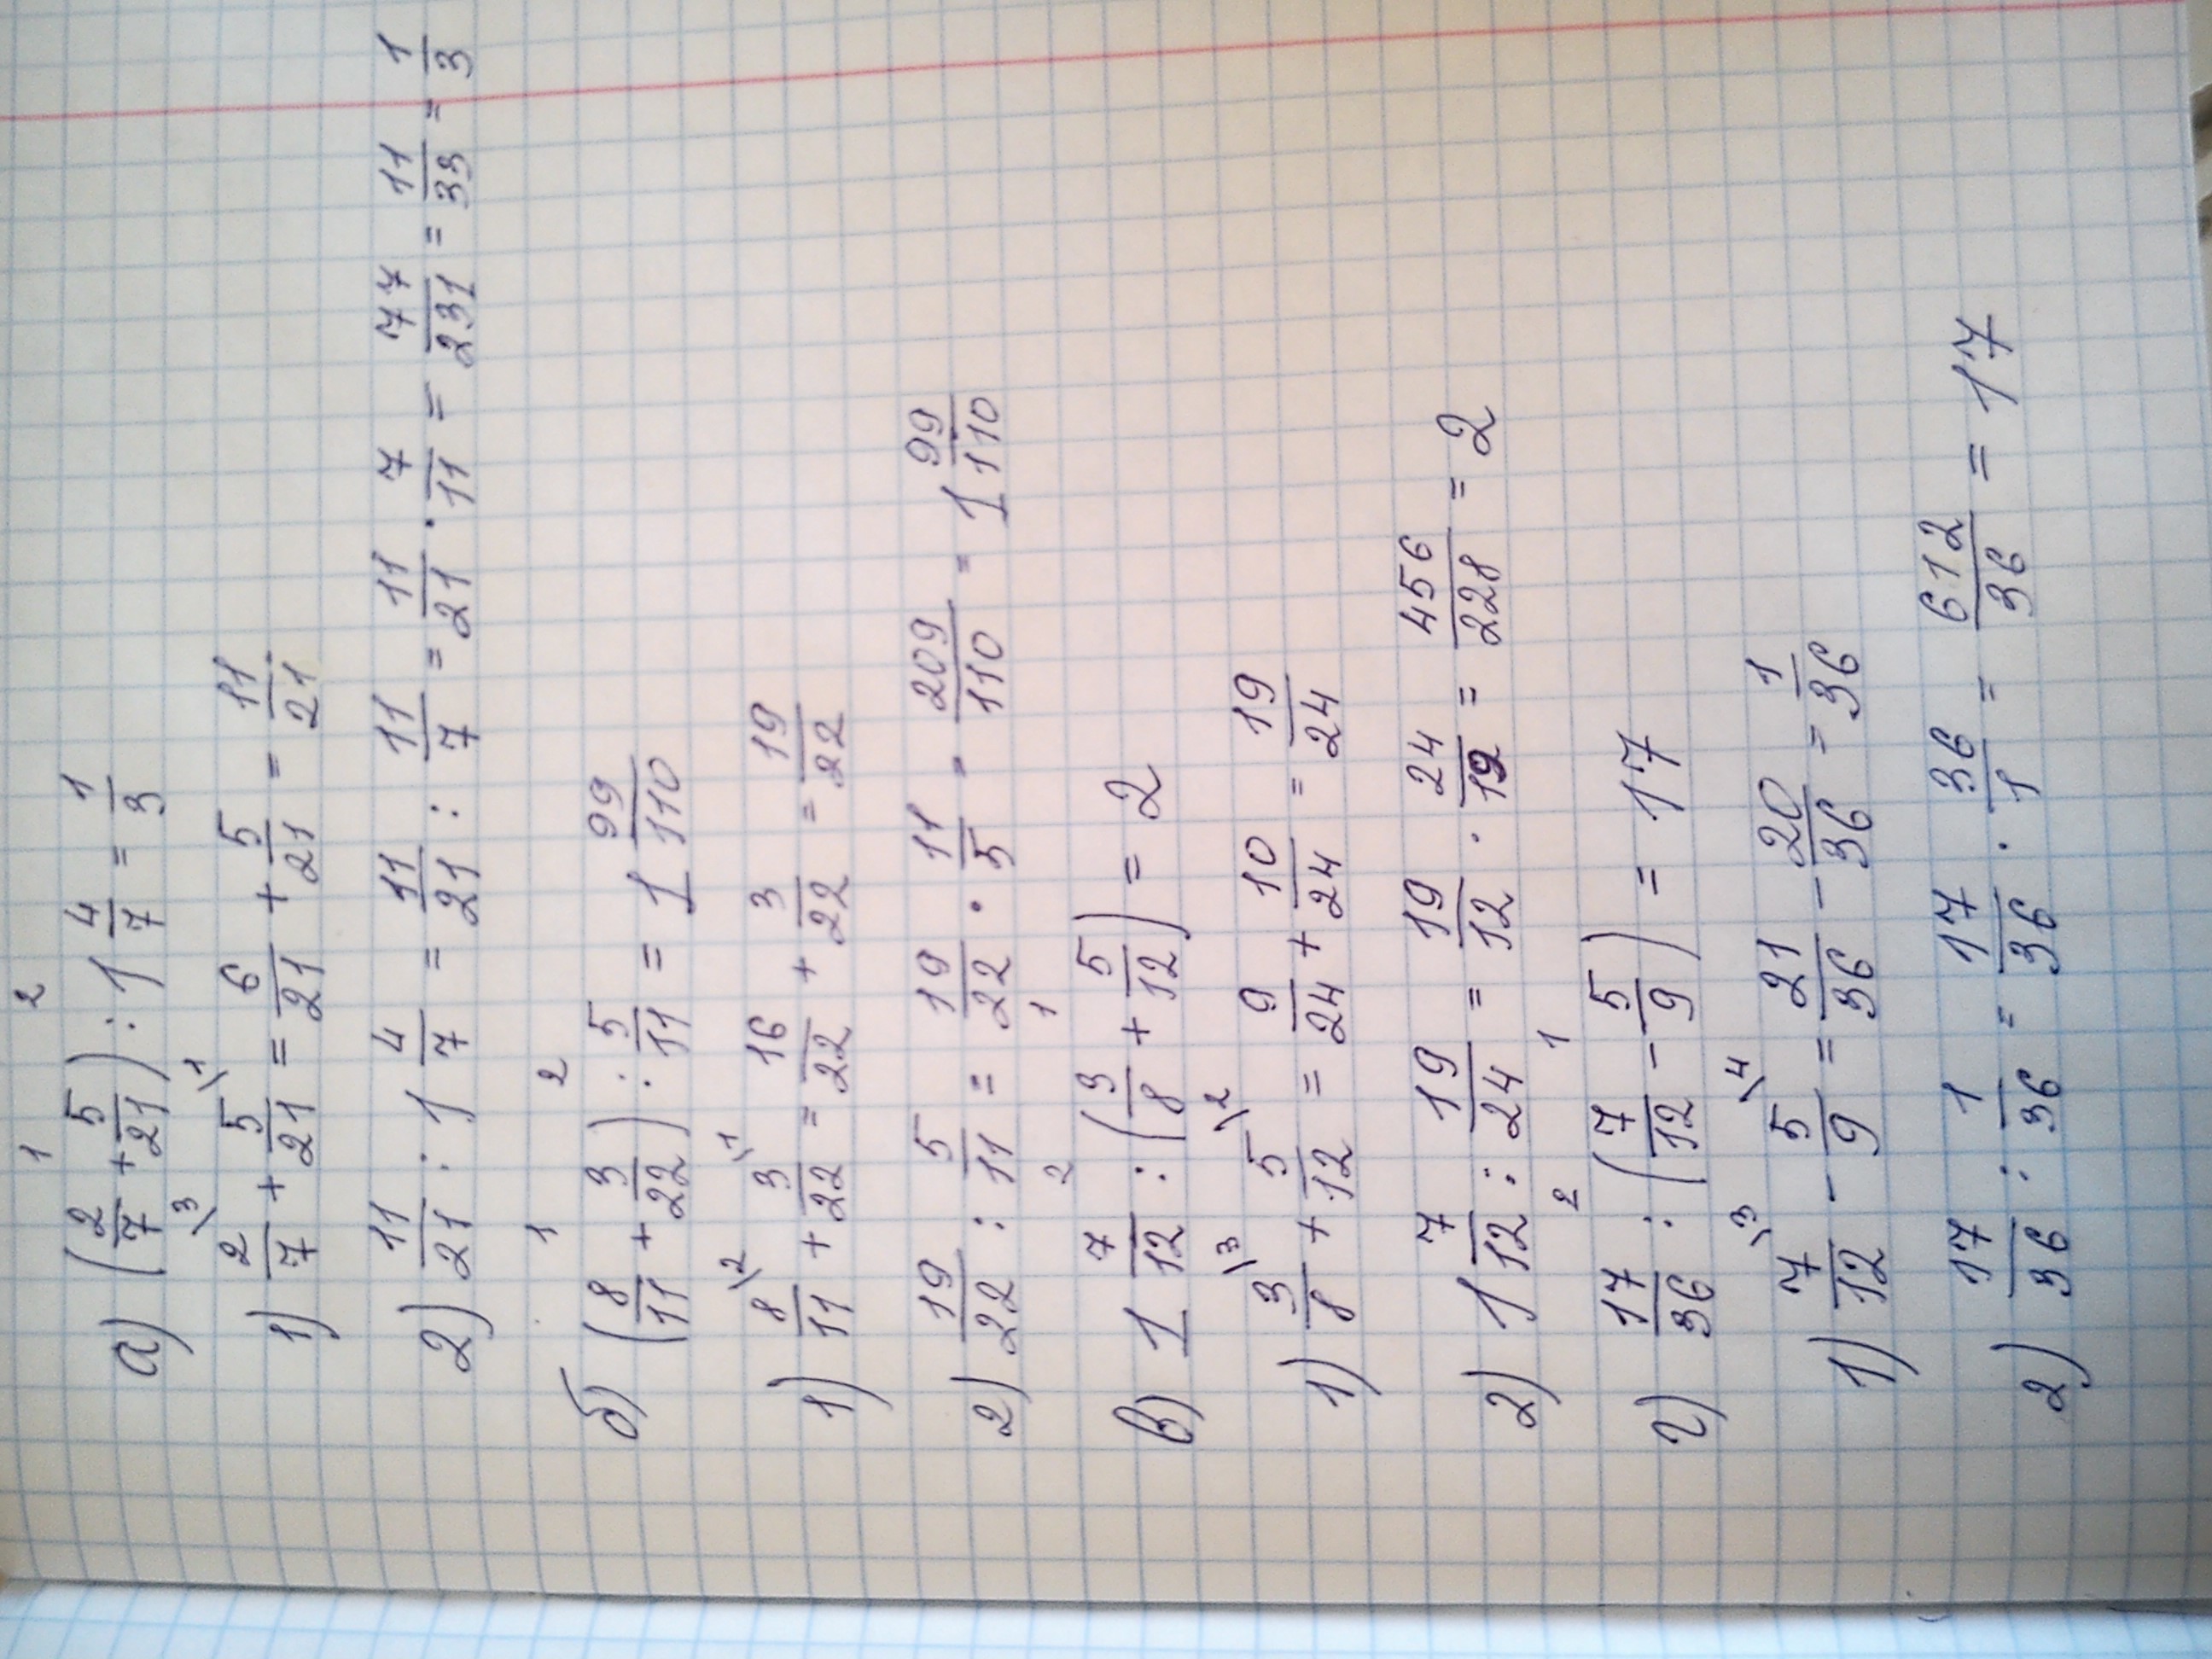 а) (2/7 + 5/21) : 1 4/7 = 1/3
1) 2/7 \3 + 5/21 \1 = 6/21 + 5/21 = 11/21
2) 11/21 : 1 4/7 = 11/21 : 11/7 = 11/21 · 7/11 = 77/231 = 11/33 = 1/3
б) (8/11 + 3/22) : 5/11 = 1 99/110
1) 8/11 \2 + 3/22 \1 = 16/22 + 3/22 = 19/22
2) 19/22 : 5/11 = 19/22 · 11/5 = 209/110 = 1 99/110
в) 1 7/12 : (3/8 + 5/12) = 2
1) 3/8 \3 + 5/12 \2 = 9/24 + 10/24 = 19/24
2) 1 7/12 : 19/24 = 19/12 · 24/19 = 456/228 = 2
г) 17/36 : (7/12 - 5/9) = 17
1) 7/12 \3 - 5/9 \4 = 21/36 - 20/36 = 1/36
2) 17/36 : 1/36 = 17/36 · 36/1 = 612/36 = 17